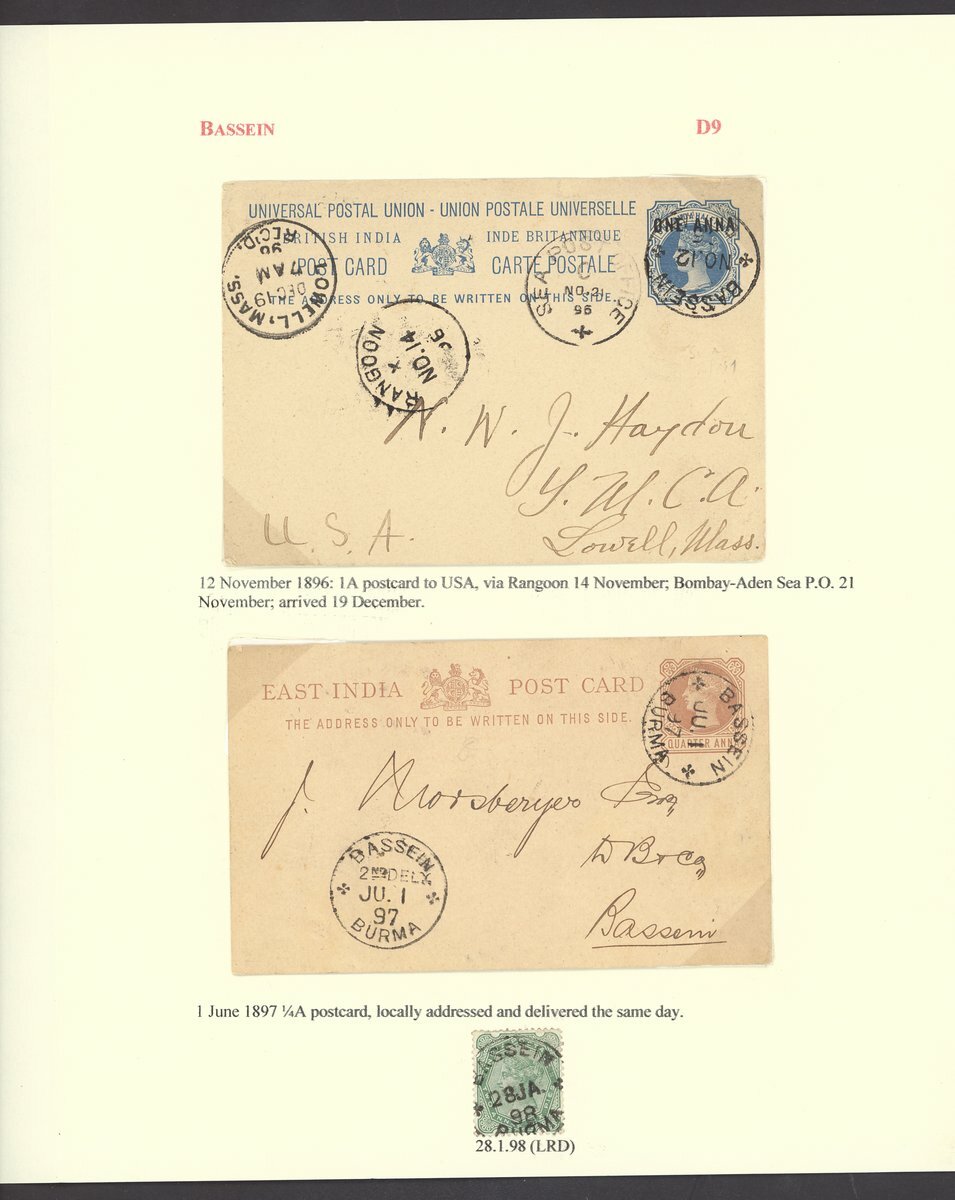 BASSEIN
D9
UNIVERSAL POSTAL UNION - UNION POSTALE UNIVERSELLE
BRITISH INDIA INDE BRITANNIQUE
POST CARD CARTE POSTALE
THE ADDRESS ONLY TO BE WRITTEN ON THIS SIDE.
ONE ANNA
BASSEIN
NO.12
LOWELL, MASS.
DEC 19
7 AM
96
REC'D.
SEA POST OFFICE
C
NO.21
96
RANGOON
NO.14
96
N. W. J. Haydon
Y. M. C. A.
Lowell, Mass.
U.S.A.
12 November 1896: 1A postcard to USA, via Rangoon 14 November; Bombay-Aden Sea P.O. 21
November; arrived 19 December.
EAST INDIA POST CARD
THE ADDRESS ONLY TO BE WRITTEN ON THIS SIDE.
QUARTER ANNA
BASSEIN
JU. 1
97
BURMA
J. Esq
Bassein
BASSEIN
2ND DELY
JU. 1
97
BURMA
1 June 1897 ¼A postcard, locally addressed and delivered the same day.
BASSEIN
28 JA.
98
BURMA
28.1.98 (LRD)